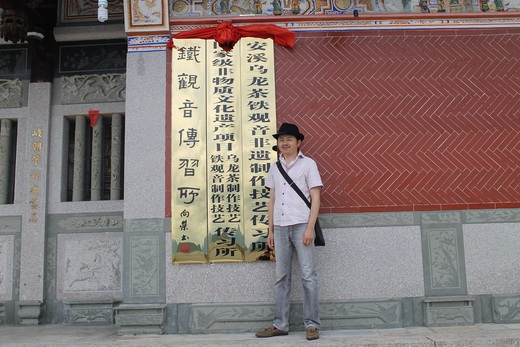 安溪乌龙茶铁观音非遗制作技艺传习所
国家级非物质文化遗产项目
乌龙茶制作技艺
铁观音制作技艺
传习所
鐵觀音傳習所
向榮書